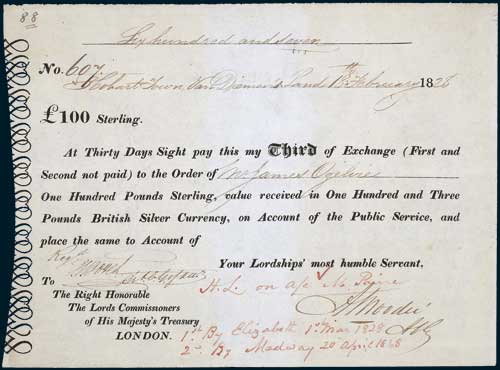 88
Six hundred and seven
No. 607
Hobart Town Van Diemen's Land 13th February 1828
£100 Sterling.
At Thirty Days Sight pay this my Third of Exchange (First and
Second not paid) to the Order of Mr James Ogilvie
One Hundred Pounds Sterling, value received in One Hundred and Three
Pounds British Silver Currency, on Account of the Public Service, and
place the same to Account of
Your Lordships' most humble Servant,
To
The Right Honorable
The Lords Commissioners
of His Majesty's Treasury
LONDON.
H. L. on a/c
A Moodie
1st. By Elizabeth 1st Mar 1828
2nd. By Medway 20 April 1828